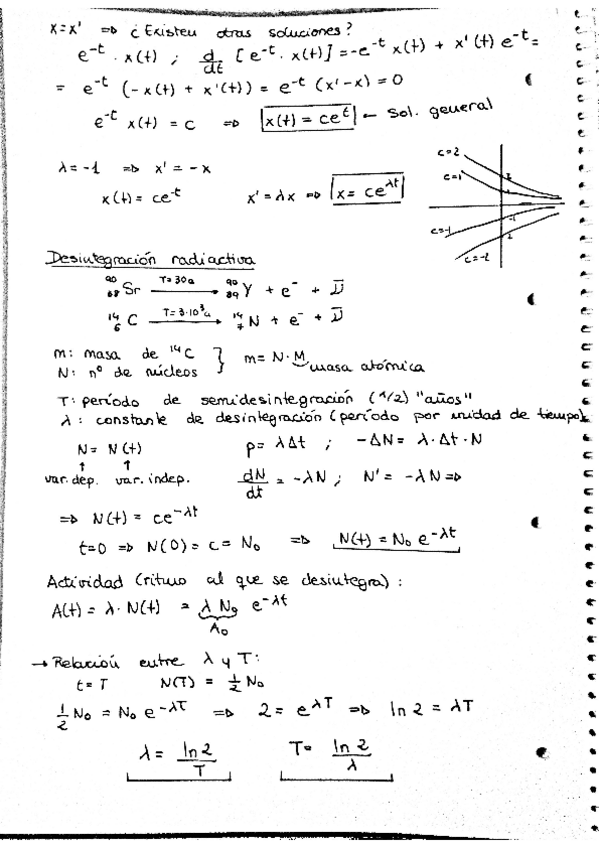 x=x' ⇒ ¿Existen otras soluciones?
e^-t · x(t) ; d/dt [e^-t · x(t)] = -e^-t x(t) + x'(t) e^-t =
= e^-t (-x(t) + x'(t)) = e^-t (x'-x) = 0
e^-t x(t) = c ⇒ x(t) = ce^t ← Sol. general
λ=-1 ⇒ x' = -x
x(t) = ce^-t x' = λx ⇒ x = ce^λt
c=2
c=1
c=-1
c=-2
2
-1
Desintegración radiactiva
90 38 Sr T=30a → 90 39 Y + e^- + ν̄
14 6 C T=3·10³a → 14 7 N + e^- + ν̄
m: masa de 14C } m = N·M
N: nº de núcleos masa atómica
T: período de semidesintegración (1/2) "años"
λ: constante de desintegración (período por unidad de tiempo)
N = N(t) p = λΔt ; -ΔN = λ·Δt·N
↑ ↑
var. dep. var. indep. dN/dt = -λN ; N' = -λN ⇒
⇒ N(t) = ce^-λt
t=0 ⇒ N(0) = c = N₀ ⇒ N(t) = N₀ e^-λt
Actividad (ritmo al que se desintegra):
A(t) = λ·N(t) = λ N₀ e^-λt
A₀
→ Relación entre λ y T:
t = T N(T) = 1/2 N₀
1/2 N₀ = N₀ e^-λT ⇒ 2 = e^λT ⇒ ln 2 = λT
λ = ln 2/T T = ln 2/λ